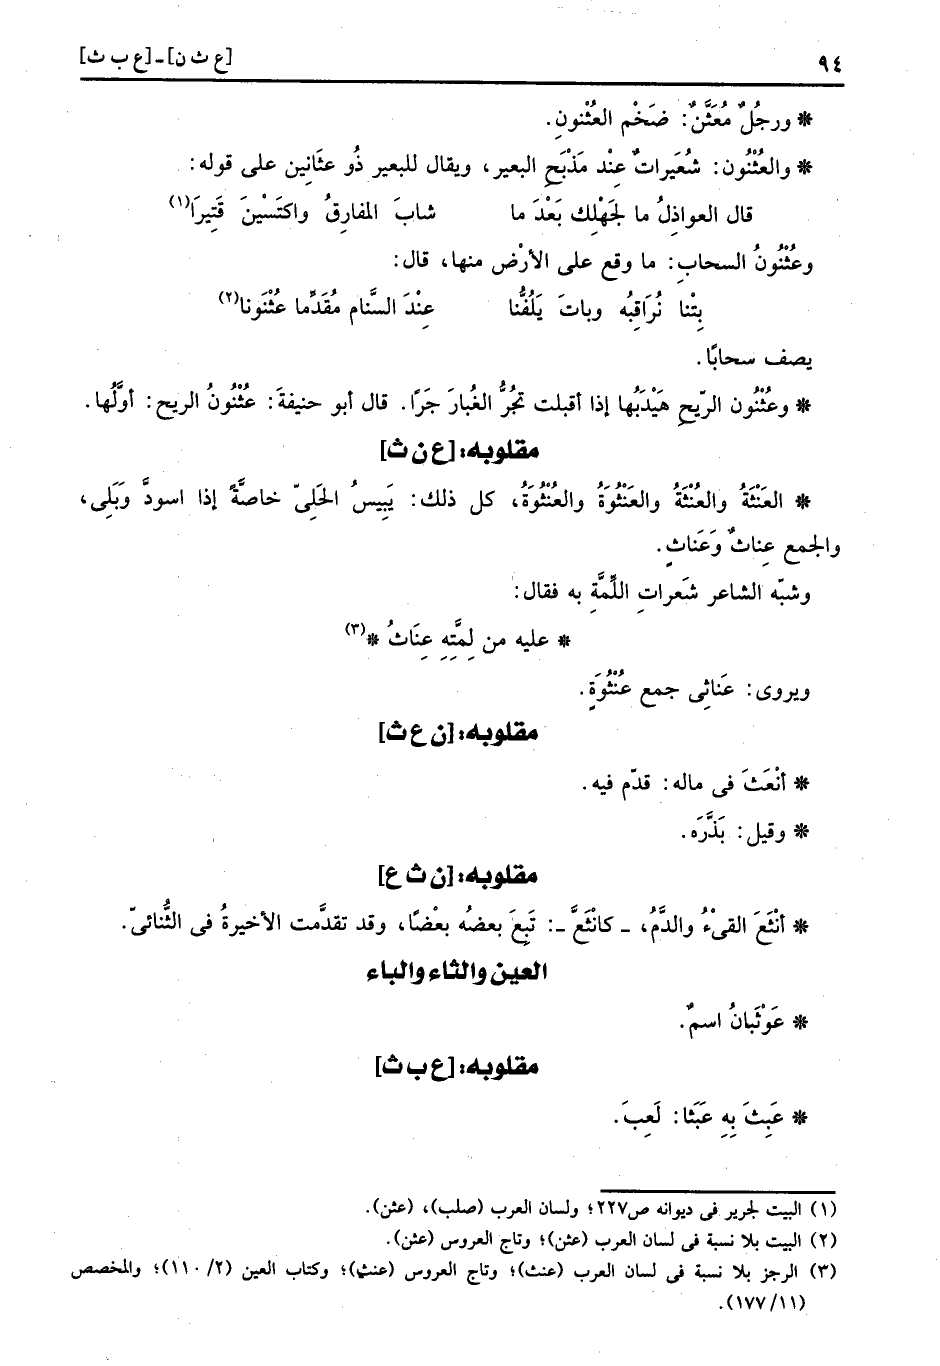 ٩٤ [ع ث ن] ـ [ع ب ث]
❊ ورجُلٌ مُعَثَّنٌ: ضَخْم العُثْنونِ.
❊ والعُثْنُون: شُعَيراتٌ عِنْد مَذْبَحِ البعير، ويقال للبعير ذُو عثَانِين على قوله:
قال العواذِلُ ما لجَهْلِك بَعْدَ ما شابَ المفارقُ واكتَسْينَ قَتِيرَا(١)
وعُثْنُونُ السحاب: ما وقع على الأرْض منها، قال:
بِتْنا نُرَاقِبُه وباتَ يَلُفُّنا عِنْدَ السَّنام مُقَدِّما عثْنَونا(٢)
يصف سحابًا.
❊ وعثْنُون الرّيحِ هَيْدَبُها إذا أقبلت تجُرُّ الغُبارَ جَرًا. قال أبو حنيفةَ: عثْنُونُ الريح: أوَّلُها.
مقلوبه: [ع ن ث]
❊ العَنْثَةُ والعُنْثَةُ والعَنْثُوَةُ والعُنْثُوَةُ، كل ذلك: يَبِيسُ الحَلِىّ خاصَّةً إذا اسودَّ وَبَلِى،
والجمع عِناثٌ وَعَناثٍ.
وشبّه الشاعر شَعراتِ اللِّمَّةِ به فقال:
❊ عليه من لِمَّتِهِ عِنَاثُ ❊(٣)
ويروى: عَناثِى جمع عُنْثُوَةٍ.
مقلوبه: [ن ع ث]
❊ أنْعَثَ فى ماله: قدّم فيه.
❊ وقيل: بَذَّرَه.
مقلوبه: [ن ث ع]
❊ أنْثَعَ القىْءُ والدَّمُ، ـ كانْثَعَّ ـ: تَبِعَ بعضُه بعْضًا، وقد تقدَّمت الأخيرةُ فى الثُّنائىّ.
العين والثاء والباء
❊ عَوْثَبانُ اسمٌ.
مقلوبه: [ع ب ث]
❊ عَبِثَ بِهِ عَبَثا: لَعِبَ.
(١) البيت لجرير فى ديوانه ص٢٢٧؛ ولسان العرب (صلب)، (عثن).
(٢) البيت بلا نسبة فى لسان العرب (عثن)؛ وتاج العروس (عثن).
(٣) الرجز بلا نسبة فى لسان العرب (عنث)؛ وتاج العروس (عنث)؛ وكتاب العين (٢/ ١١٠)؛ والمخصص
(١١/ ١٧٧).